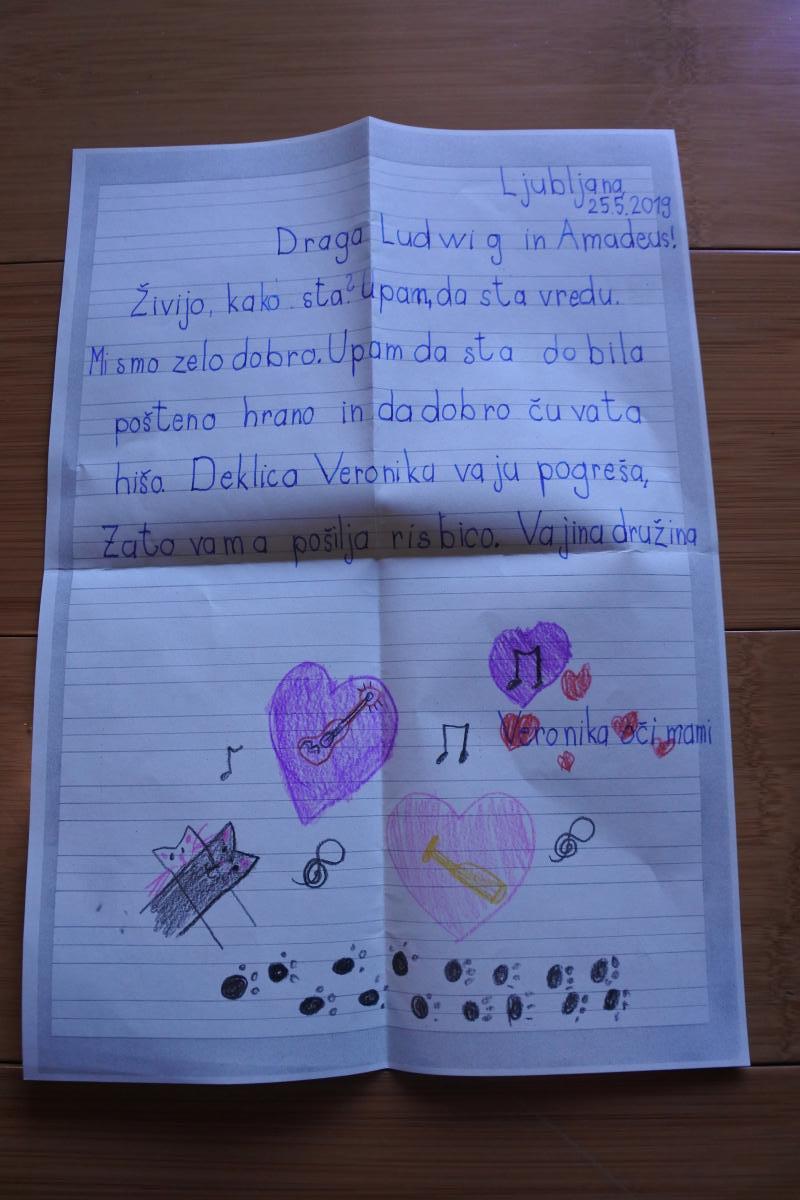 Ljubljana
25.5.2019
Draga Ludwig in Amadeus!
Živijo, kako sta? Upam, da sta vredu.
Mi smo zelo dobro. Upam da sta dobila
pošteno hrano in da dobro čuvata
hišo. Deklica Veronika vaju pogreša,
Zato vama pošilja risbico. Vajina družina
Veronika oči mami